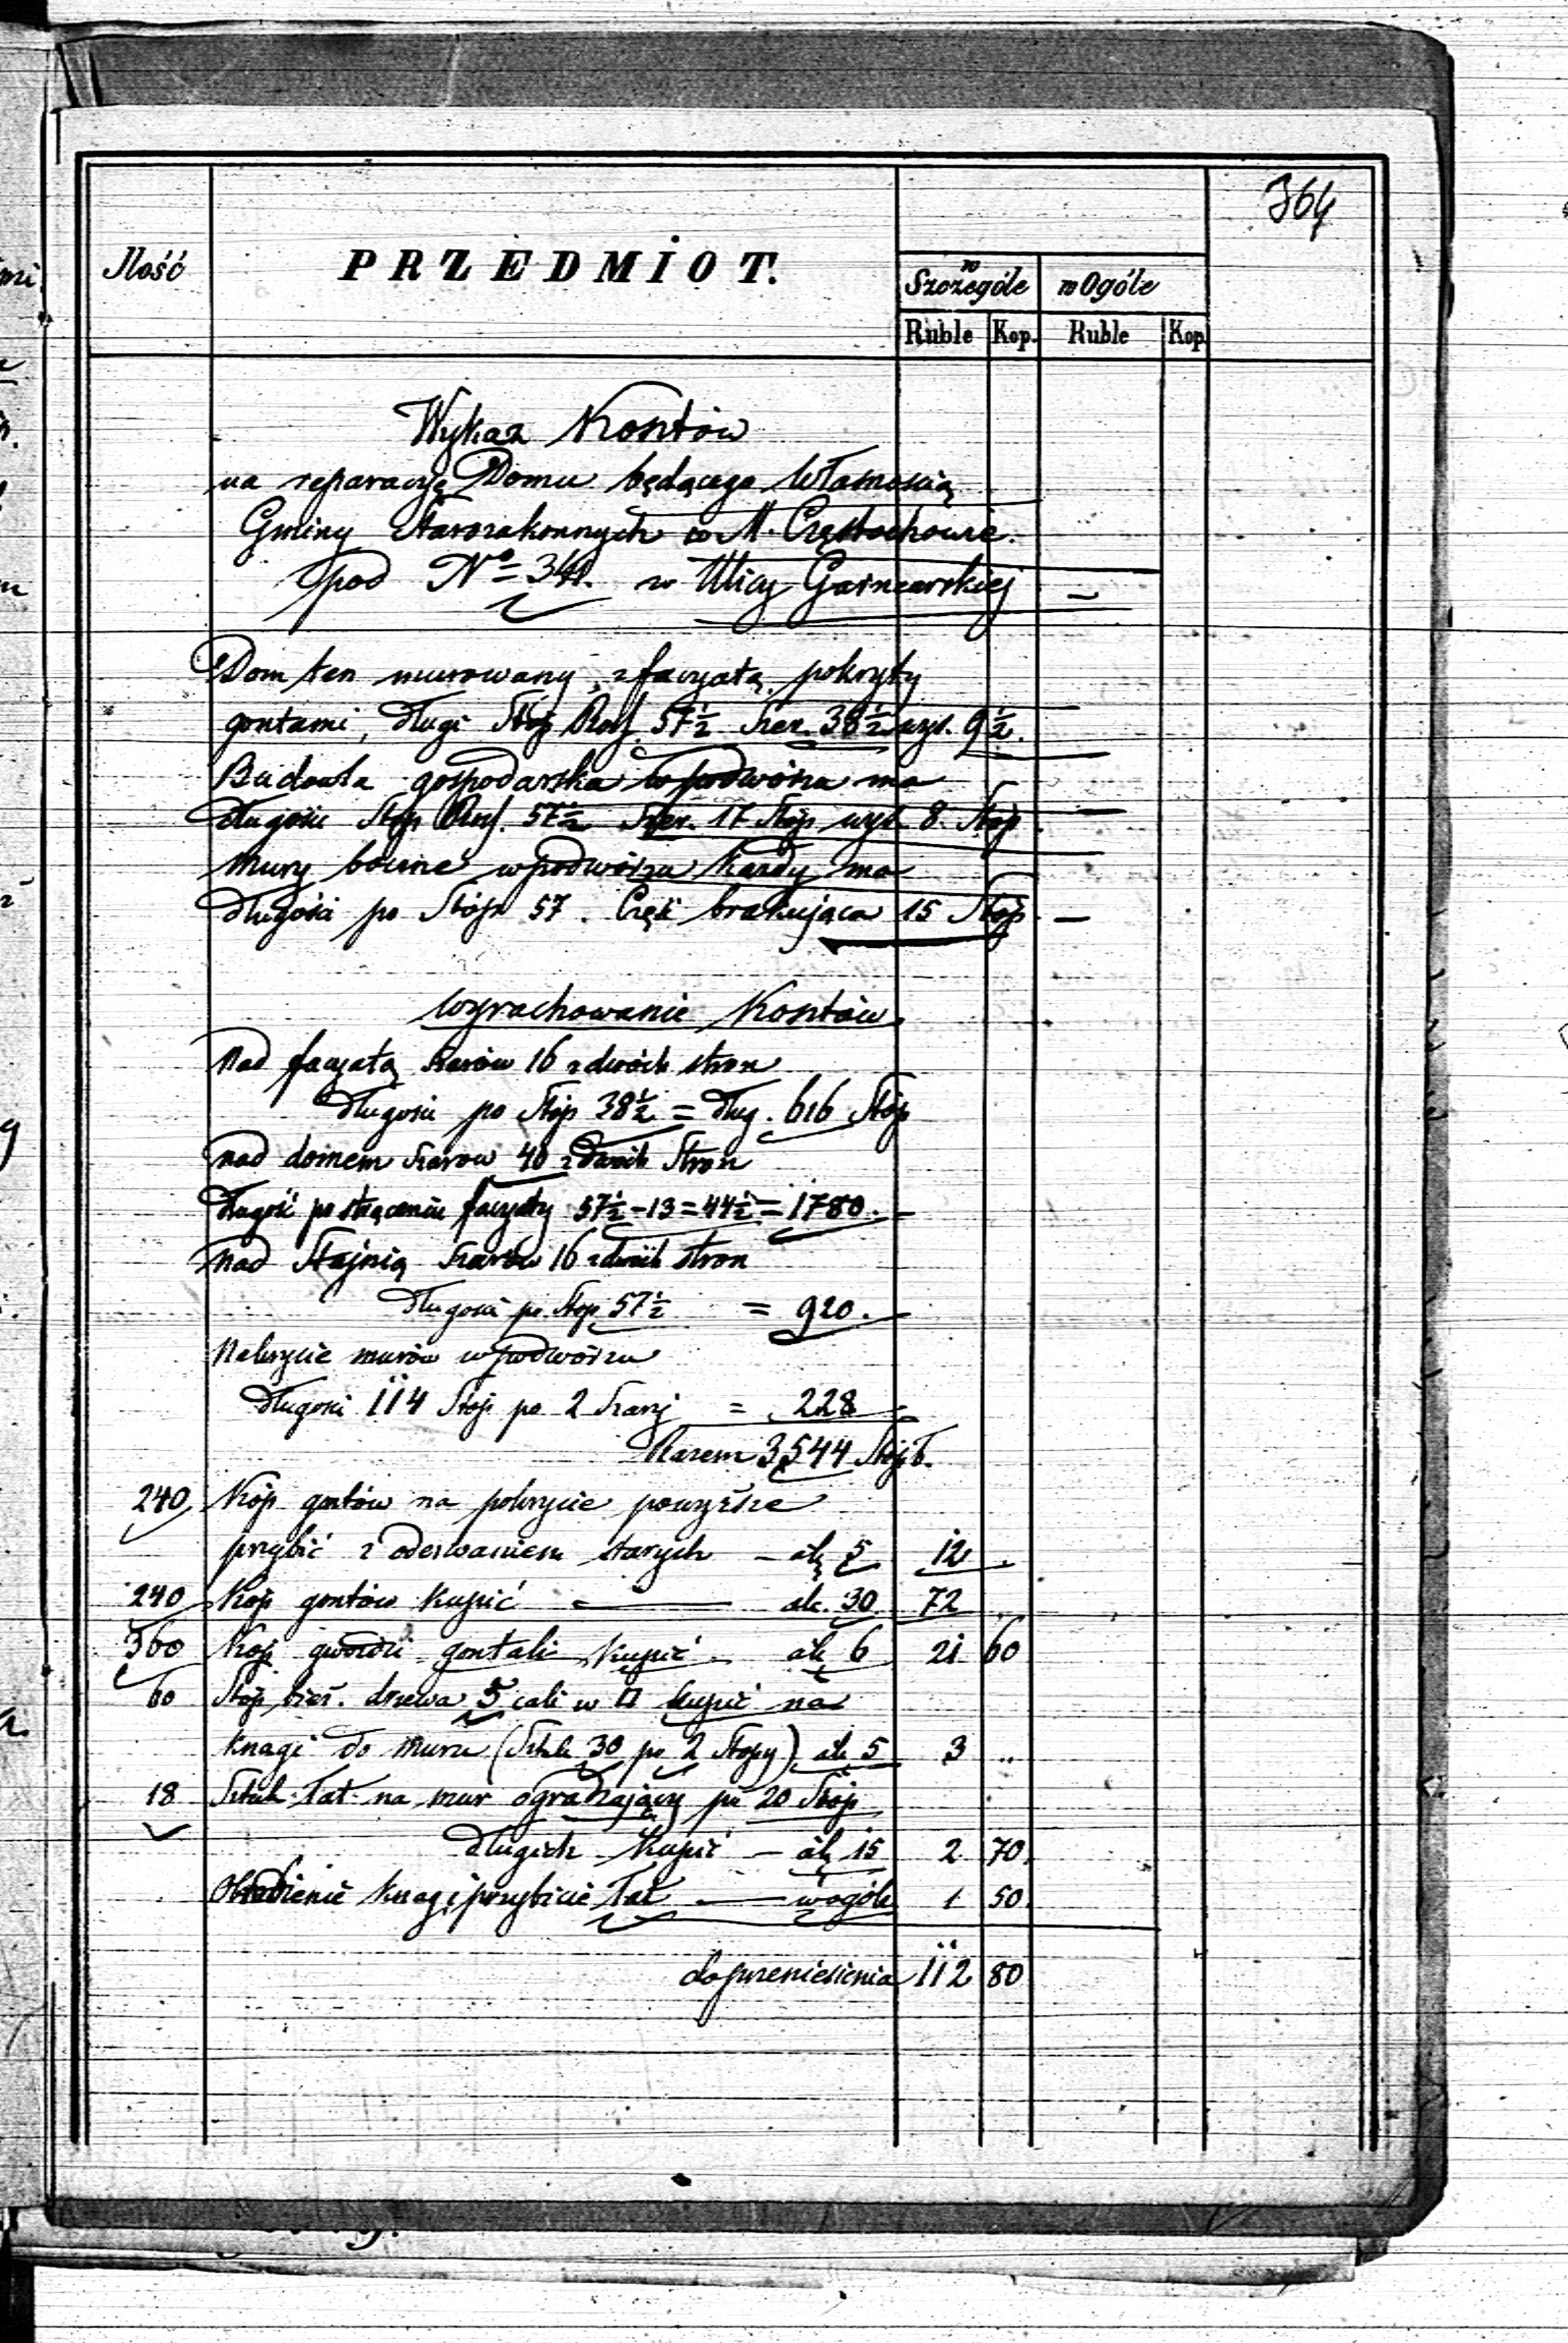 364
Ilość PRZEDMIOT. w Szczególe w Ogóle
Ruble Kop. Ruble Kop
Wykaz Kosztów
na reparacyę Domu będącego Własnością
Gminy Starozakonnych w M. Częstochowie.
pod No 341. w Ulicy Garncarskiej
Dom ten murowany, z facyatą, pokryty
gontami, długi Stóp Ros. 57½ Szer. 38½ wys. 9½.
Budowla gospodarska w podwórzu ma
długości Stóp Ros. 57½ Szer. 17 Stóp wys. 8. Stóp
Mury boczne w podwórzu każdy ma
długości po Stóp 57. Część brakująca 15 Stóp.
Wyrachowanie Kosztów
Nad facyatą Szarów 16 z dwóch stron
długości po Stóp 38½ = dług. 616 Stóp
nad domem Szarow 40 z dwóch Stron
długość po strąceniu facyaty 57½-13=44½=1780.
nad Stajnią Szarów 16 z dwóch stron
długości po Stop 57½ = 920.
Nakrycie murów w podwórzu
długości 114 Stóp po 2 Szary = 228
Razem 3544 Stóp b.
240 Kóp gontów na pokrycie powyższe
przybić z oderwaniem starych - ak 5 12 .
240 Kóp gontów kupić - ak. 30 72
360 Kóp gwoździ gontali kupić - ak 6 21 60
60 Stóp bież. drzewa 5 cali w □ kupić na
knagi do muru (Sztuk 30 po 2 Stopy) ak 5 3 "
18 Sztuk łat na mur ogradzający po 20 Stóp
długich kupić - ak 15 2 70.
knag i przybicie łat - wogóle 1 50.
do przeniesienia 112 80